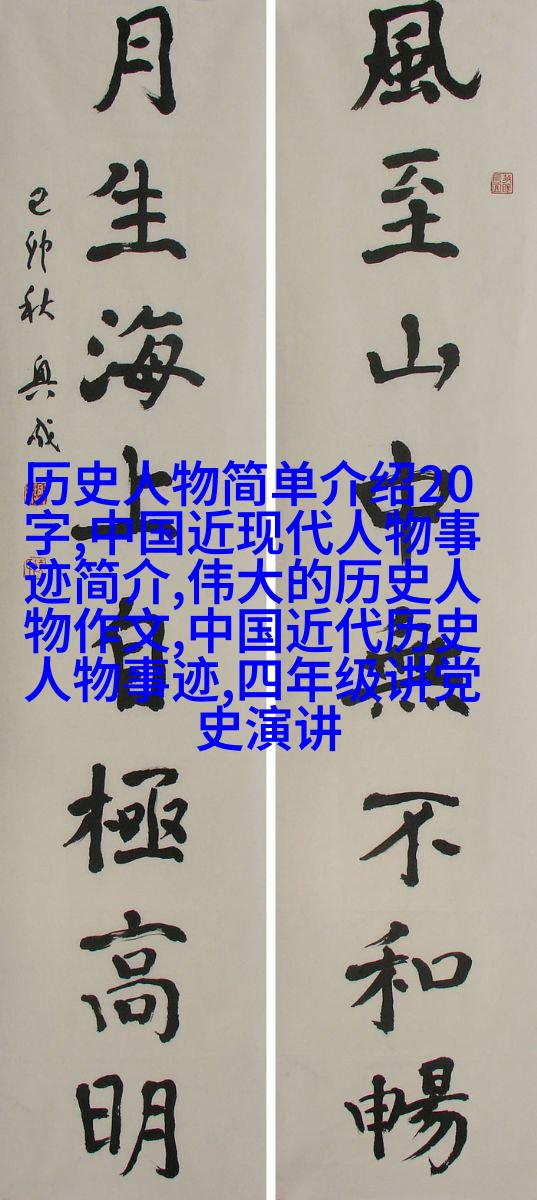 風至山中無不和暢
月生海上自極高明
己卯秋
历史人物简单介绍20
字,中国近现代人物事
迹简介,伟大的历史人
物作文,中国近代历史
人物事迹,四年级讲党
史演讲